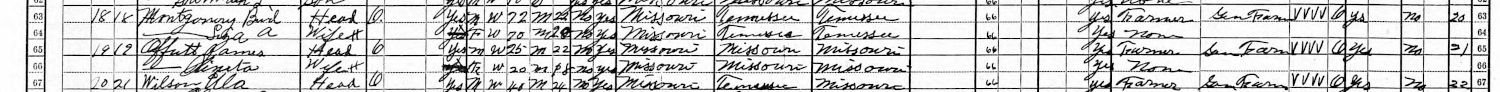 63 18 18 Montgomery Bird Head O Yes M W 72 M 22 No Yes Missouri Tennessee Tennessee 66 Yes Farmer Gen Farm VVVV O Yes No 20 63
64 — Liza A Wife H F W 70 M 20 No Yes Missouri Tennessee Tennessee 66 Yes None 64
65 19 19 Offutt James Head O Yes M W 25 M 22 No Yes Missouri Missouri Missouri 66 Yes Farmer Gen Farm VVVV O Yes No 21 65
66 — Wife H F W 20 M 18 No Yes Missouri Missouri Missouri 66 Yes None 66
67 20 21 Wilson Head O Yes M W 48 M 24 No Yes Missouri Tennessee Missouri 66 Yes Farmer Gen Farm VVVV O Yes No 22 67